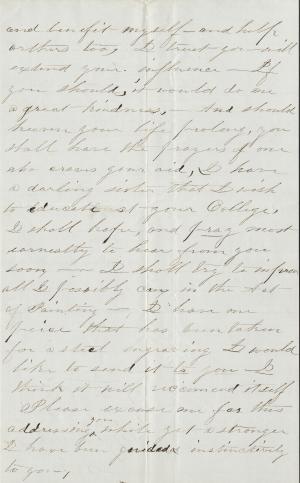 and benefit myself - and help
others too, I trust you will
extend your influence - If
you should, it would do me
a great kindness, - And should
heaven your life prolong, you
shall have the prayers of one
who craves your aid, I have
a darling sister that I wish
to educate at your College,
I shall hope, and pray most
earnestly to hear from you
soon - I shall try to inform
all I possibly can in the Art
of Painting -, I have one
peice that has been taken
for a steel engraving I would
like to send it to you I
think it will reccomend itself
Please excuse me for thus
addressing you while yet a stranger
I have been guided instinctively
to you -,